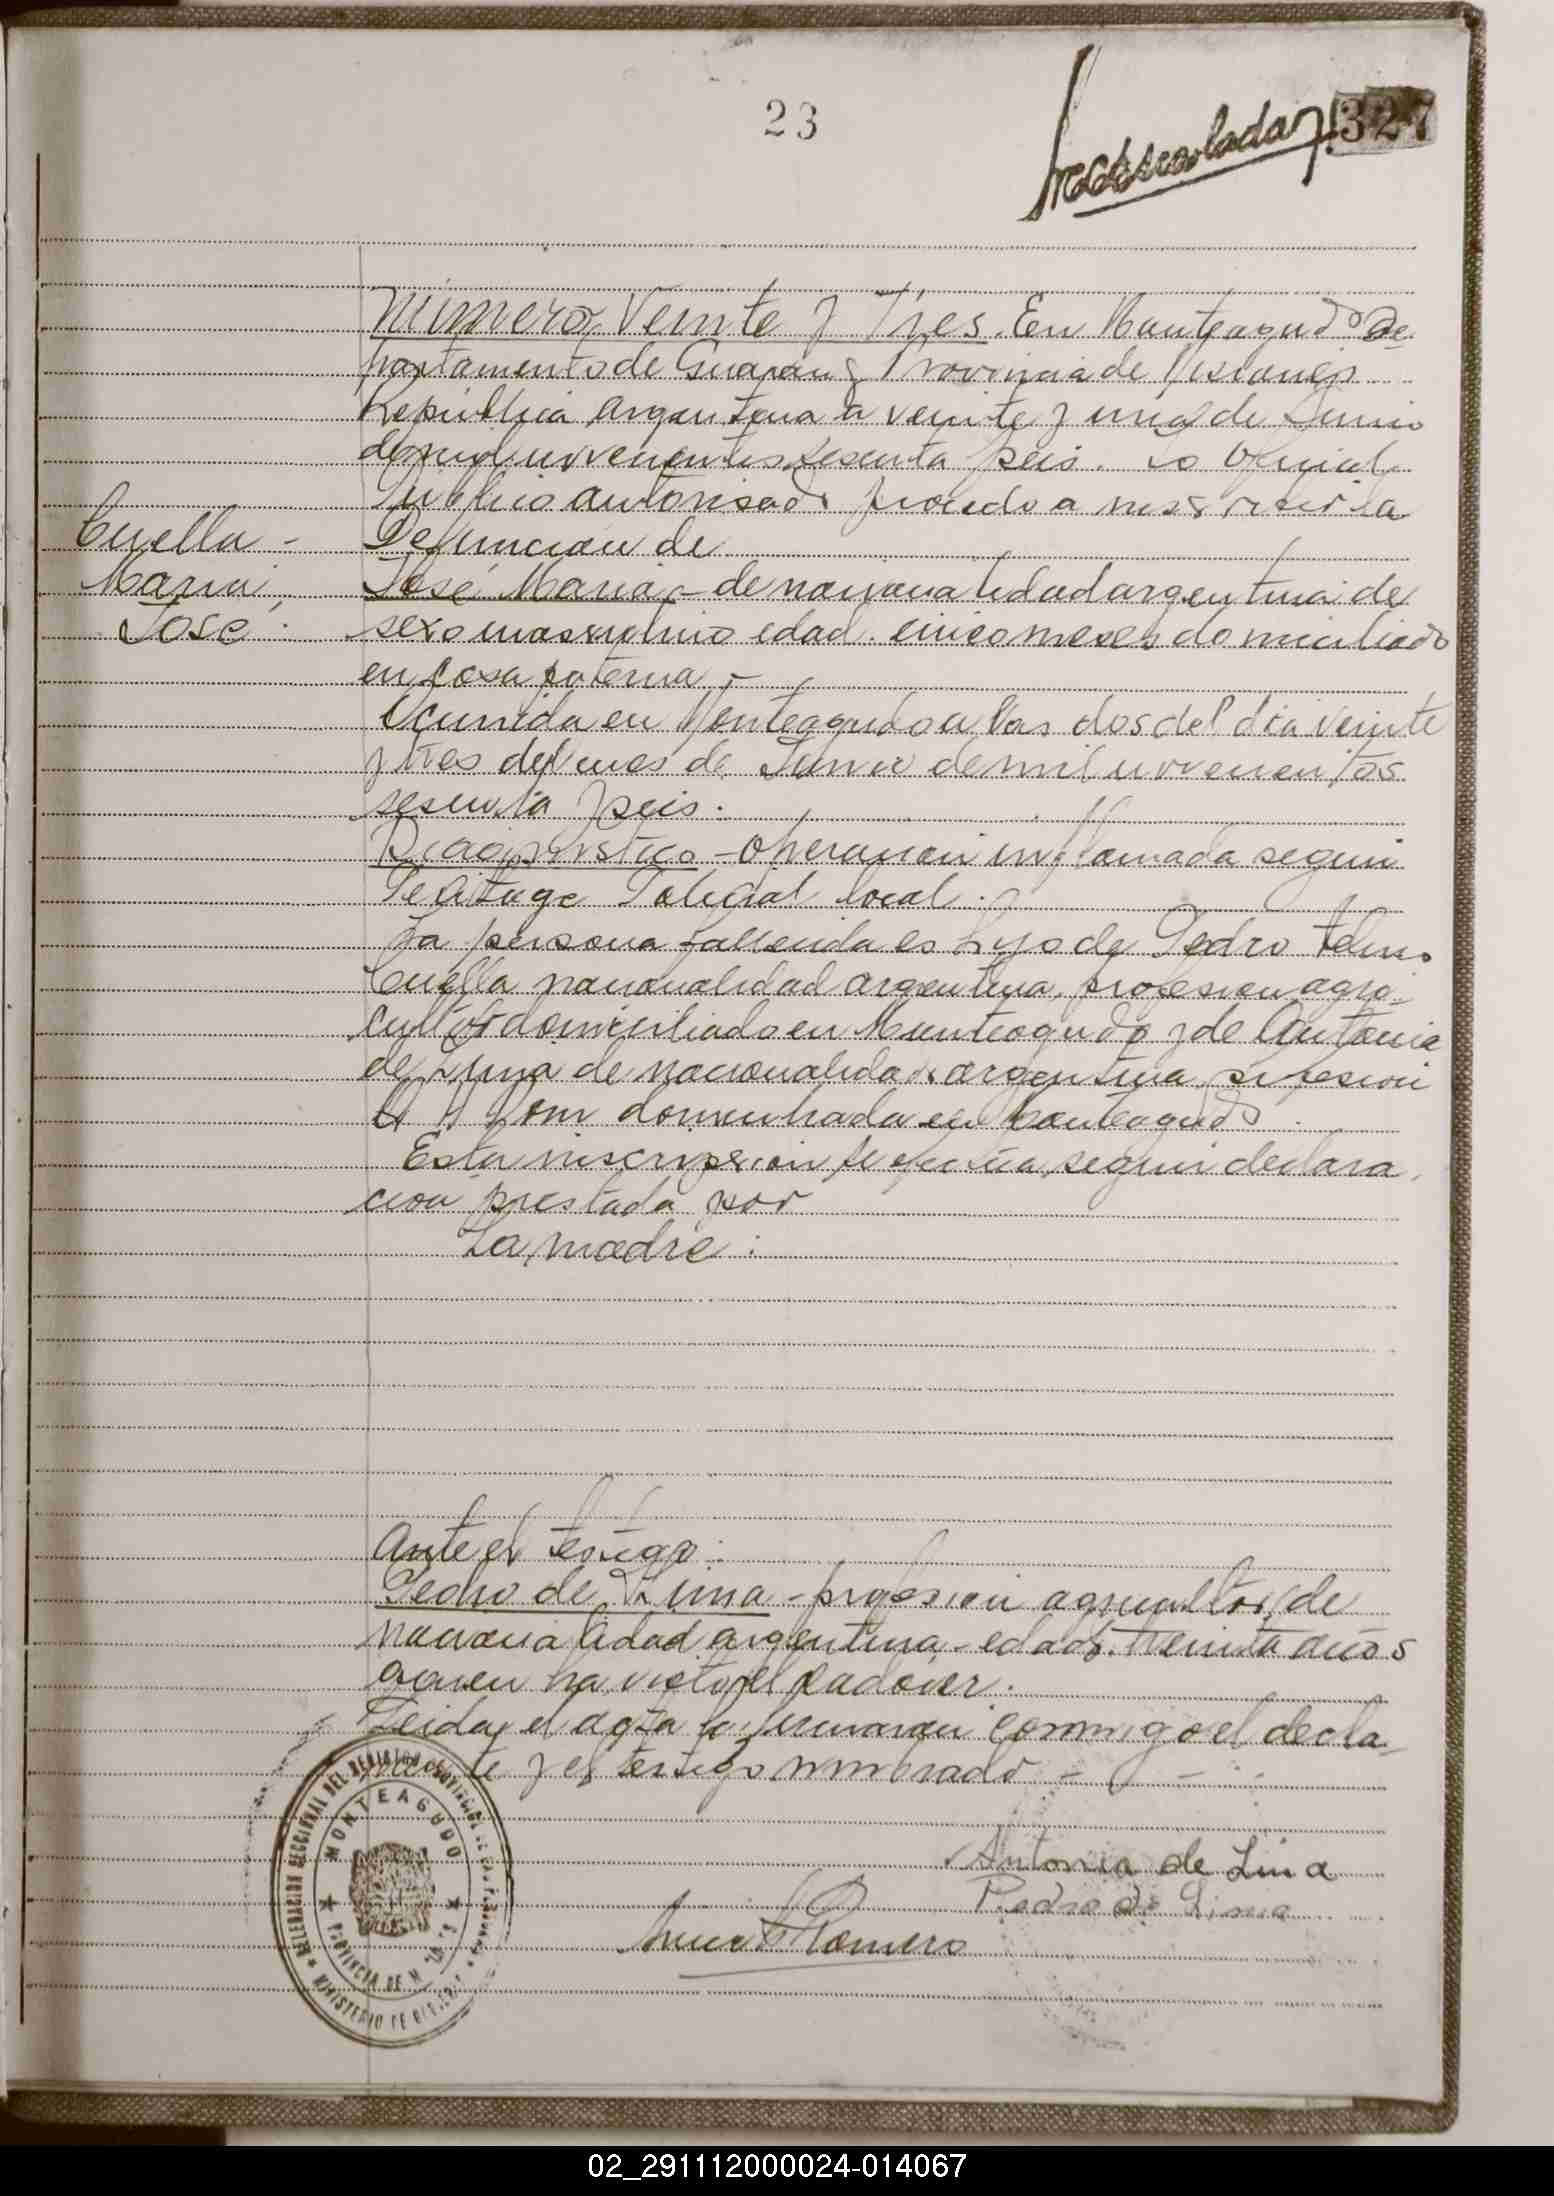 23
327
Número Veinte y Tres. En Monteagudo De-
partamento de Guaraní Provincia de Misiones
República Argentina a veinte y de Junio
de mil novecientos sesenta y seis. Yo Oficial
Público autorisado procedo a inscribir la
Cuella -
Defuncion de
Maria
José Maria - de nacionalidad argentina de
José
sexo masculino edad. cinco meses domiciliado
en casa paterna -
Ocurrida en Monteagudo a las dos del dia veinte
y tres del mes de Junio de mil novecientos
sesenta y seis.
Diagnostico - operacion inflamada segun
Peritage Policial local.
La persona fallecida es hijo de Pedro
Cuella nacionalidad argentina, profesion agri-
cultor domiciliado en Monteagudo y de Antonia
de Lima de nacionalidad argentina profesion
domiciliada en Monteagudo
Esta inscripcion se efectua segun declara
cion prestada por
La madre:
Ante el testigo:
Pedro de Lima - profesion agricultor de
nacionalidad argentina - edad. treinta años
quien ha visto el cadaver.
Leida el acta la firmaran conmigo el decla-
te y el testigo nombrado -
Antonia de Lima
Pedro de Lima
Romero
DELEGACION SECCIONAL DEL REGISTRO PROVINCIAL DE LAS PERSONAS
MONTEAGUDO
PROVINCIA DE MISIONES
MINISTERIO DE GOBIERNO
02_291112000024-014067